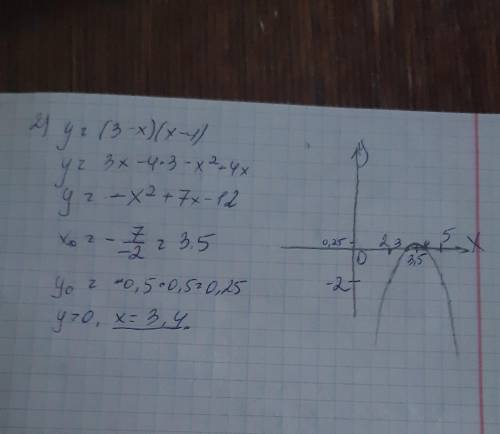 2) y = (3-x)(x-4)
y = 3x - 4·3 - x² + 4x
y = -x² + 7x - 12
x₀ = -7/-2 = 3.5
y₀ = -0,5·0,5=0,25
y=0, x = 3, 4.
y
0,25
0
2
3
3,5
4
5
X
-2